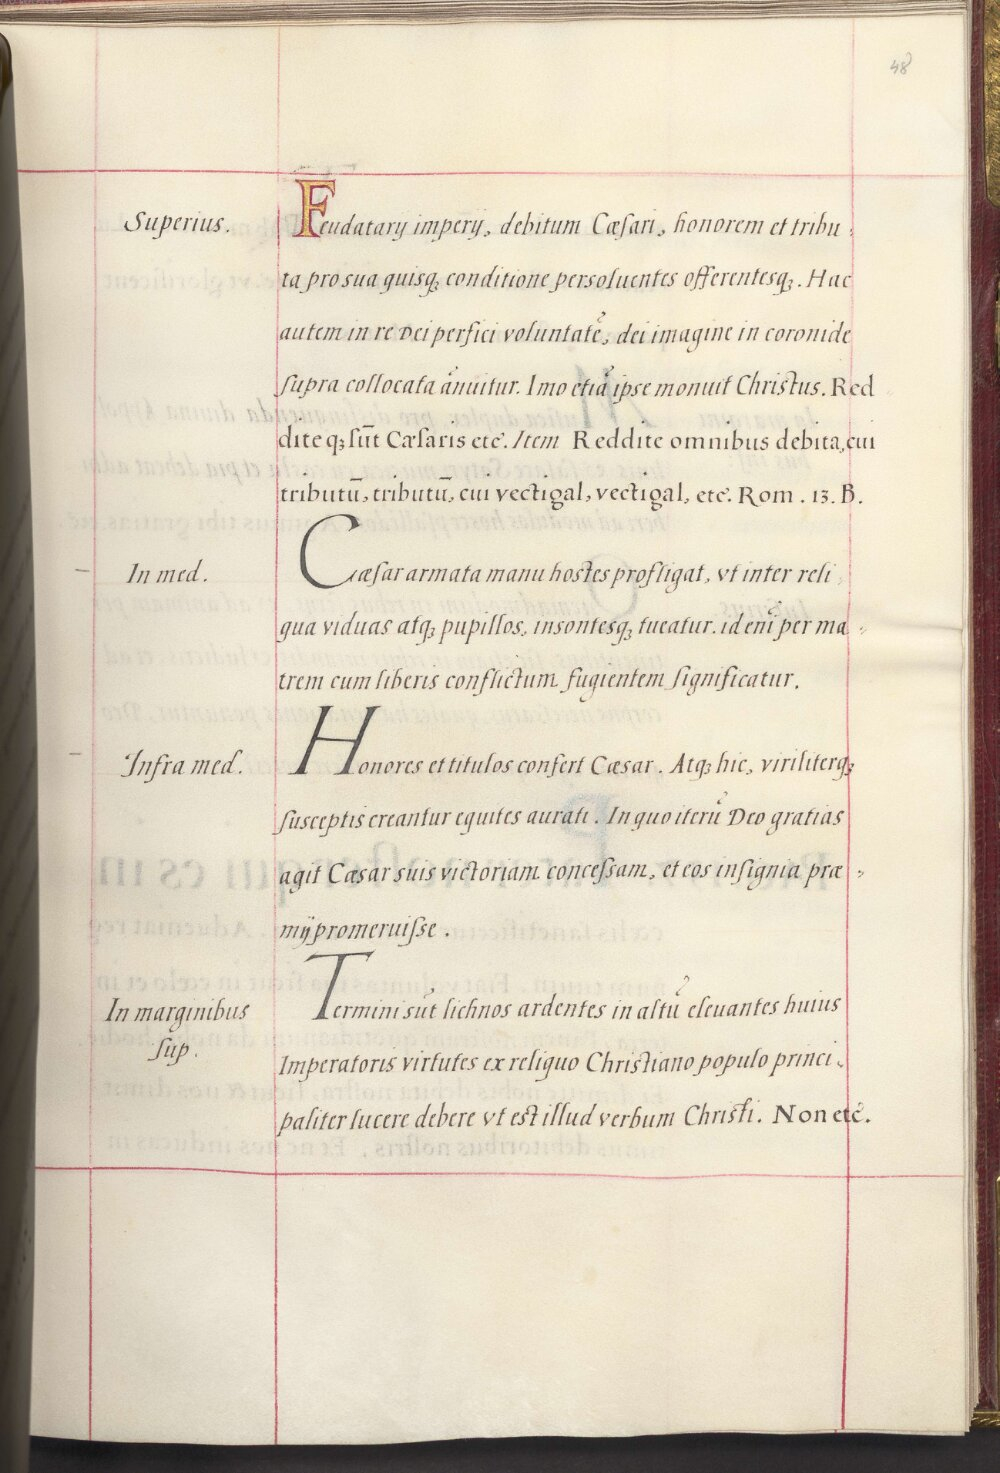 48
Superius.
Feudatarij imperij, debitum Cæsari, honorem et tribu
ta pro sua quisq; conditione persoluentes offerentesq;. Hac
autem in re Dei perfici voluntatē, dei imagine in coronide
supra collocata ānuitur. Imo etiā ipse monuit Christus. Red
dite q; sūt Cæsaris etc. Item Reddite omnibus debita, cui
tributū, tributū, cui vectigal, vectigal, etc. Rom. 13. B.
In med.
Cæsar armata manu hostes profligat, vt inter reli
qua viduas atq; pupillos, insontesq; tueatur. id enī per ma
trem cum liberis conflictum fugientem significatur.
Infra med.
Honores et titulos confert Cæsar. Atq; hic, viriliterq;
susceptis creantur equites aurati. In quo iterū Deo gratias
agit Cæsar suis victoriam concessam, et eos insignia præ
mij promeruisse.
In marginibus
sup.
Termini sūt lichnos ardentes in altū eleuantes huius
Imperatoris virtutes ex reliquo Christiano populo princi
paliter lucere debere vt est illud verbum Christi. Non etc.